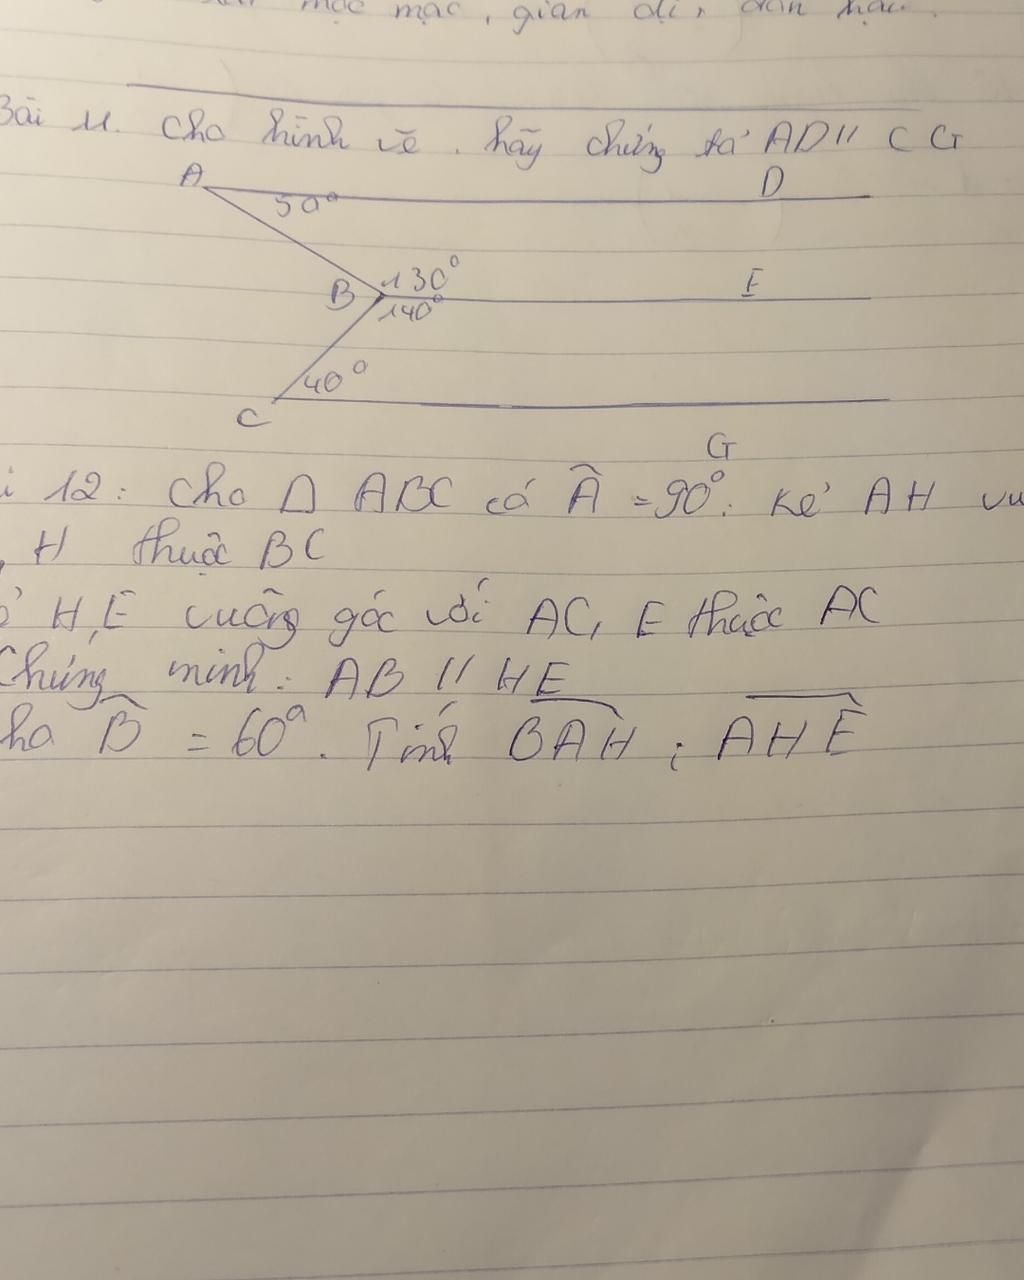 mộc mạc, giản dị, dân hậu.
Bài 11. Cho hình vẽ. hãy chứng tỏ AD // CG
A D
50°
B 130° E
140°
40°
C
G
i 12: Cho Δ ABC có Â = 90°. Kẻ AH vu
, H thuộc BC
H,E vuông góc với AC, E thuộc AC
Chứng minh: AB // HE
ho B̂ = 60°. Tính BAH; AHE